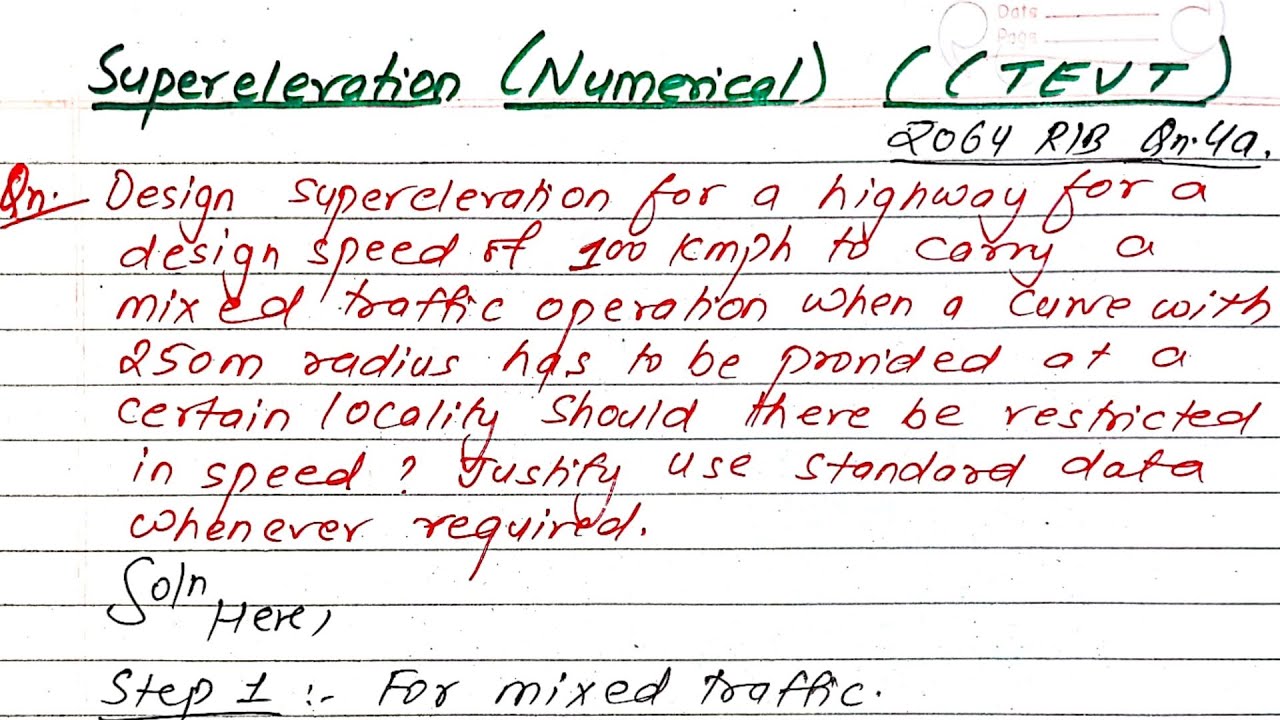 Date
Page
Superelevation (Numerical) ((TEVT)
2064 R/B Qn.4a.
Qn. Design superelevation for a highway for a
design speed of 100 kmph to carry a
mixed traffic operation when a curve with
250m radius has to be provided at a
certain locality should there be restricted
in speed? Justify use standard data
whenever required.
Soln Here,
Step 1 :- For mixed traffic.